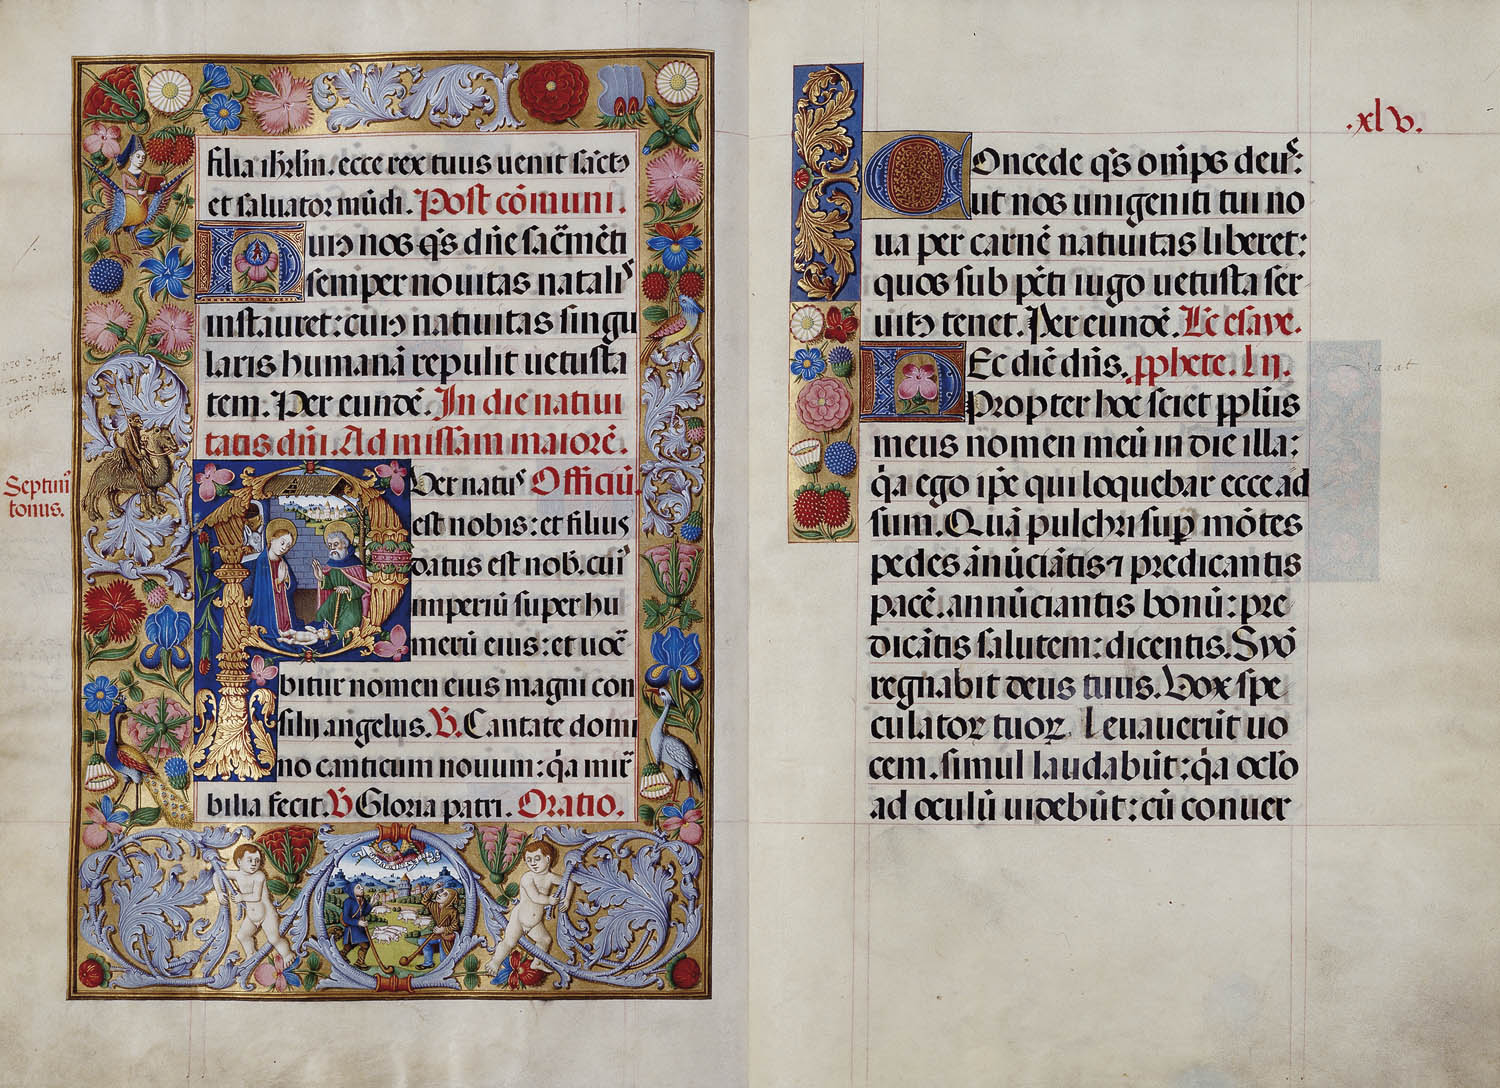 filia ihr̃lm. ecce rex tuus uenit sãctꝰ
et saluator mũdi. Post cõmuni.
Huiꝰ nos q̃s dñe sac̃mẽti
semper nouitas natalis
instauret: cuiꝰ natiuitas singu
laris humanã repulit uetusta
tem: Per eundẽ. In die natiui
tatis dñi. Ad missam maiorẽ.
Septimi
tonus.
Puer natus Officiũ.
est nobis: et filius
datus est nob. cui
imperiũ super hu
merũ eius: et uoc̃
bitur nomen eius magni con
silij angelus. V̄. Cantate domi
no canticum nouum: q̃a mir̃
bilia fecit. V̄ Gloria patri. Oratio.
.xlv.
Concede q̃s om̃ps deus:
ut nos unigeniti tui no
ua per carnẽ natiuitas liberet:
quos sub pc̃ti iugo uetusta ser
uitꝰ tenet. Per eundẽ. Lc̃ esaye.
Hec dic̃ dñs. ꝓphete. lij.
Propter hoc sciet ppl̃us
meus nomen meũ in die illa:
q̃a ego ip̃e qui loquebar ecce ad
sum. Quã pulchri sup̃ mõtes
pedes ãnũciãtis ⁊ predicantis
pacẽ. annũciantis bonũ: pre
dicãtis salutem: dicentis. Syõ
regnabit deus tuus. Vox spe
culatorꝝ tuoꝝ leuauerũt uo
cem. simul laudabũt: q̃a oc̃lo
ad oculũ uidebũt: cũ conuer